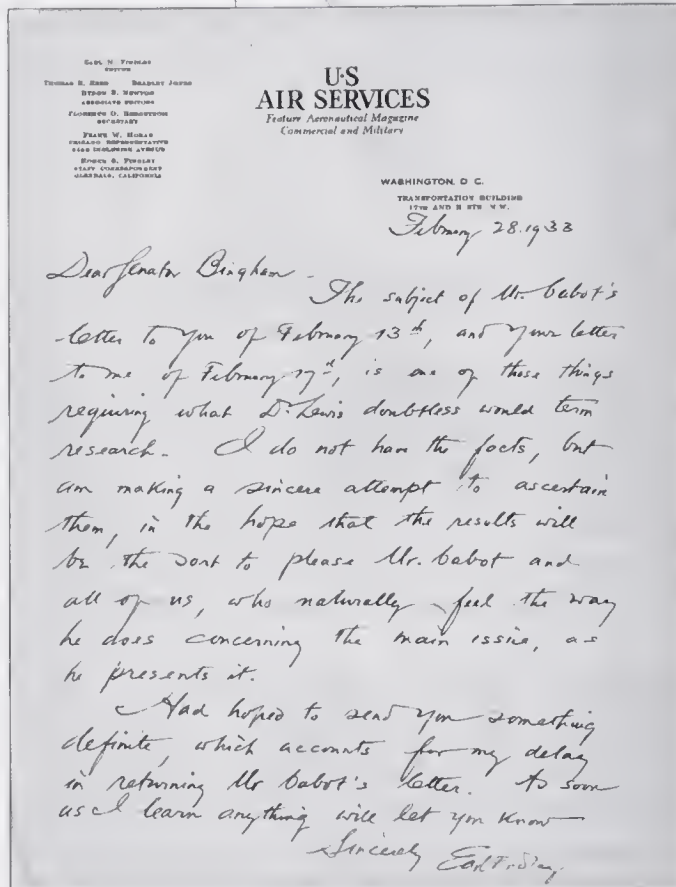 EARL N. FINDLEY
EDITOR
THOMAS R. REED BRADLEY JONES
BYRON R. NEWTON
ASSOCIATE EDITORS
SECRETARY
FRANK W. HORAN
CHICAGO REPRESENTATIVE
AVENUE
ROGER G. FINDLEY
STAFF CORRESPONDENT
GLENDALE, CALIFORNIA
U·S
AIR SERVICES
Feature Aeronautical Magazine
Commercial and Military
WASHINGTON, D C.
TRANSPORTATION BUILDING
17TH AND H STS N.W.
February 28. 1933
Dear Senator Bingham -
The subject of Mr. Cabot's
letter to you of February 13th, and your letter
to me of February 17th, is one of those things
requiring what Dr. Lewis doubtless would term
research. I do not have the facts, but
am making a sincere attempt to ascertain
them, in the hope that the results will
be the sort to please Mr. Cabot and
all of us, who naturally feel the way
he does concerning the main issue, as
he presents it.
Had hoped to send you something
definite, which accounts for my delay
in returning Mr Cabot's letter. As soon
as I learn anything will let you know
Sincerely Earl Findley